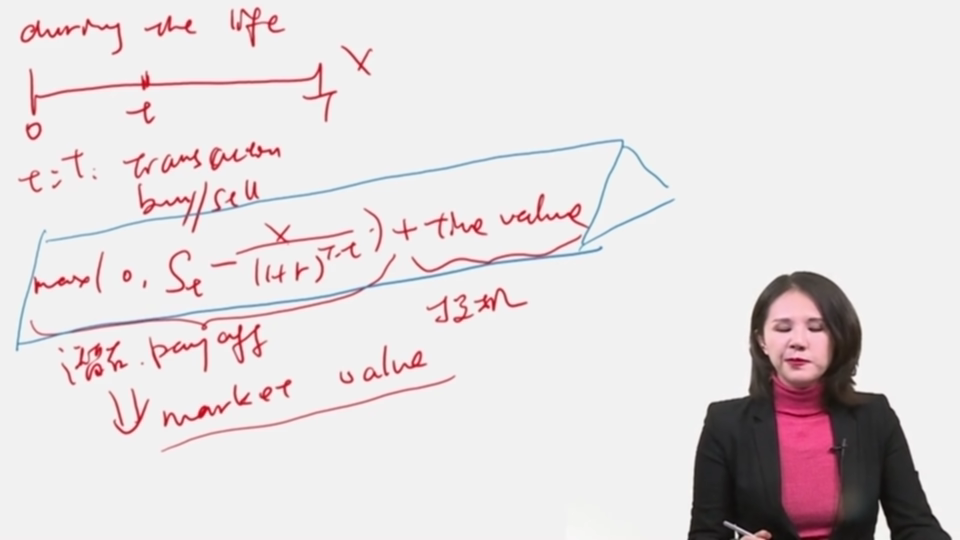 during the life
X
0 t T
t=T: transaction
buy/sell
max(0, St - X/(1+r)^T-t) + the value
潜在 payoff
投机
market value